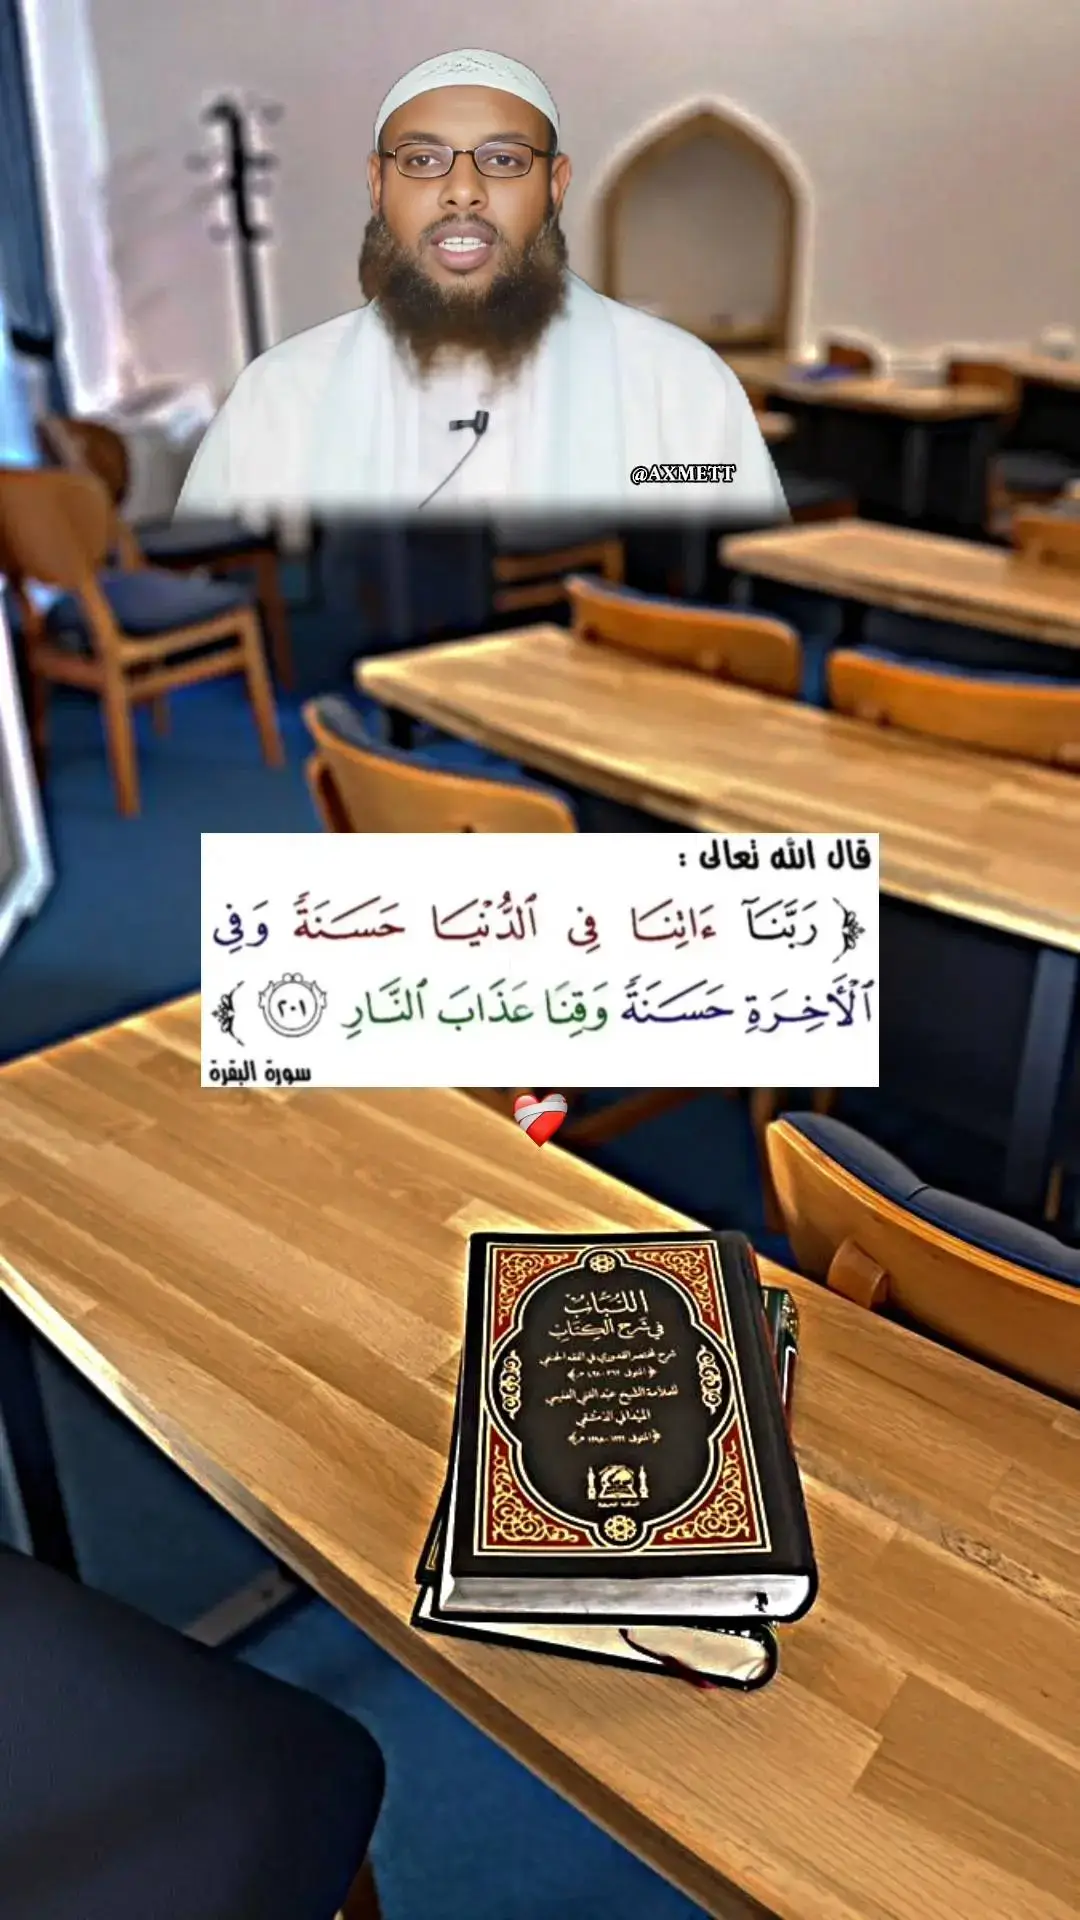 @AXMETT
قال الله تعالى :
﴿ رَبَّنَآ ءَاتِنَا فِي ٱلدُّنْيَا حَسَنَةً وَفِي
ٱلْأَخِرَةِ حَسَنَةً وَقِنَا عَذَابَ ٱلنَّارِ ٢٠١ ﴾
سورة البقرة
اللُّبَابُ
فِي شَرْحِ الْكِتَابِ
شرح مختصر القدوري في الفقه الحنفي
للعلامة الشيخ عبد الغني الغنيمي
الميداني الدمشقي